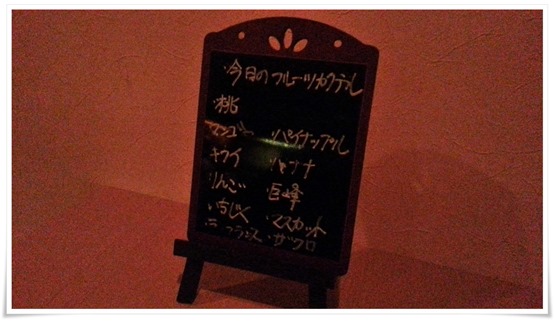 ・今日のフルーツカクテル
・桃
・マンゴー ・パイナップル
・キウイ ・バナナ
・りんご ・巨峰
・いちじく ・マスカット
・ラ・フランス ・ザクロ